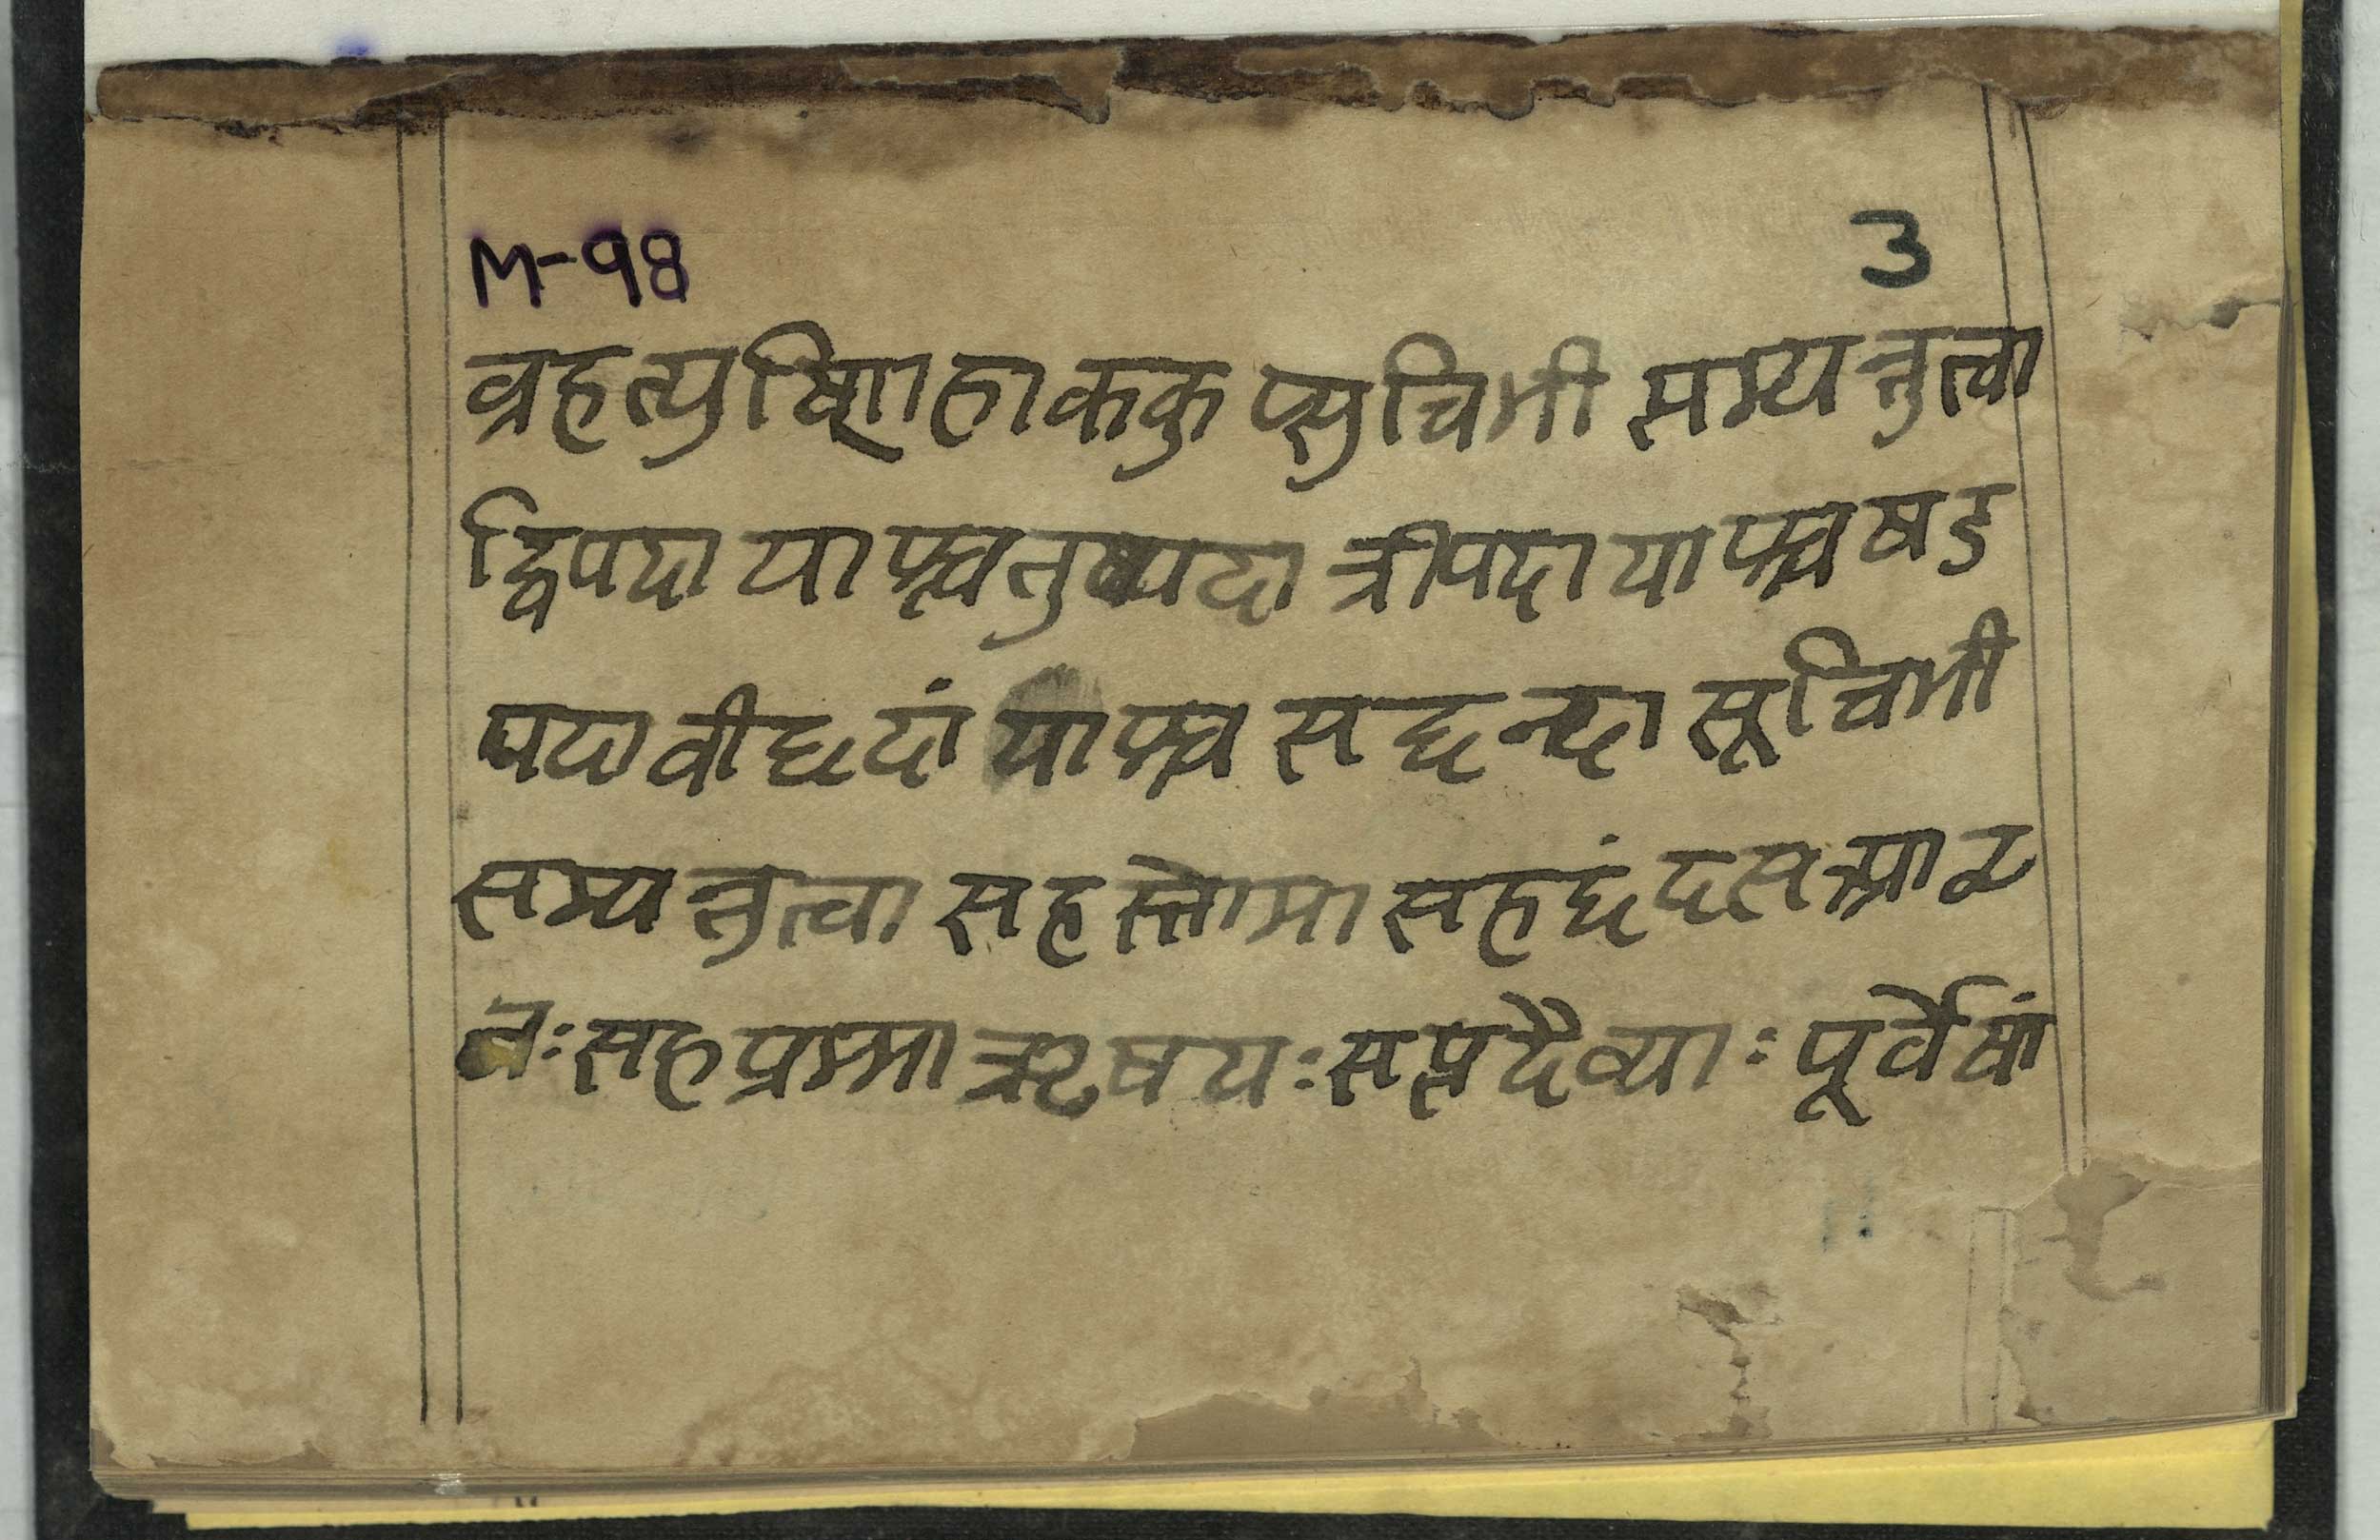 M-98 3
व्रहत्युष्णिहाककुप्सुचिभी सम्यन्तुत्वा
द्विपदा याश्चतुष्पदा त्रीपदा याश्च षड
पदा वीछदां याश्च सछन्दा सूचिभी
सम्यन्तुत्वा सहस्तोमा सहछंदसआवृ
तः सहप्रम्मा ऋषयः सप्तदैव्याः पूर्वेषां